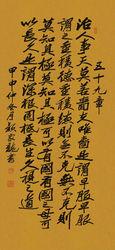 五十九章
治人事天莫若嗇夫唯嗇是謂早服早服
謂之重積德重積德則無不克無不克則
莫知其極莫知其極可以有國有國之母可
以長久是謂深根固柢長生久視之道
甲申仲冬月書